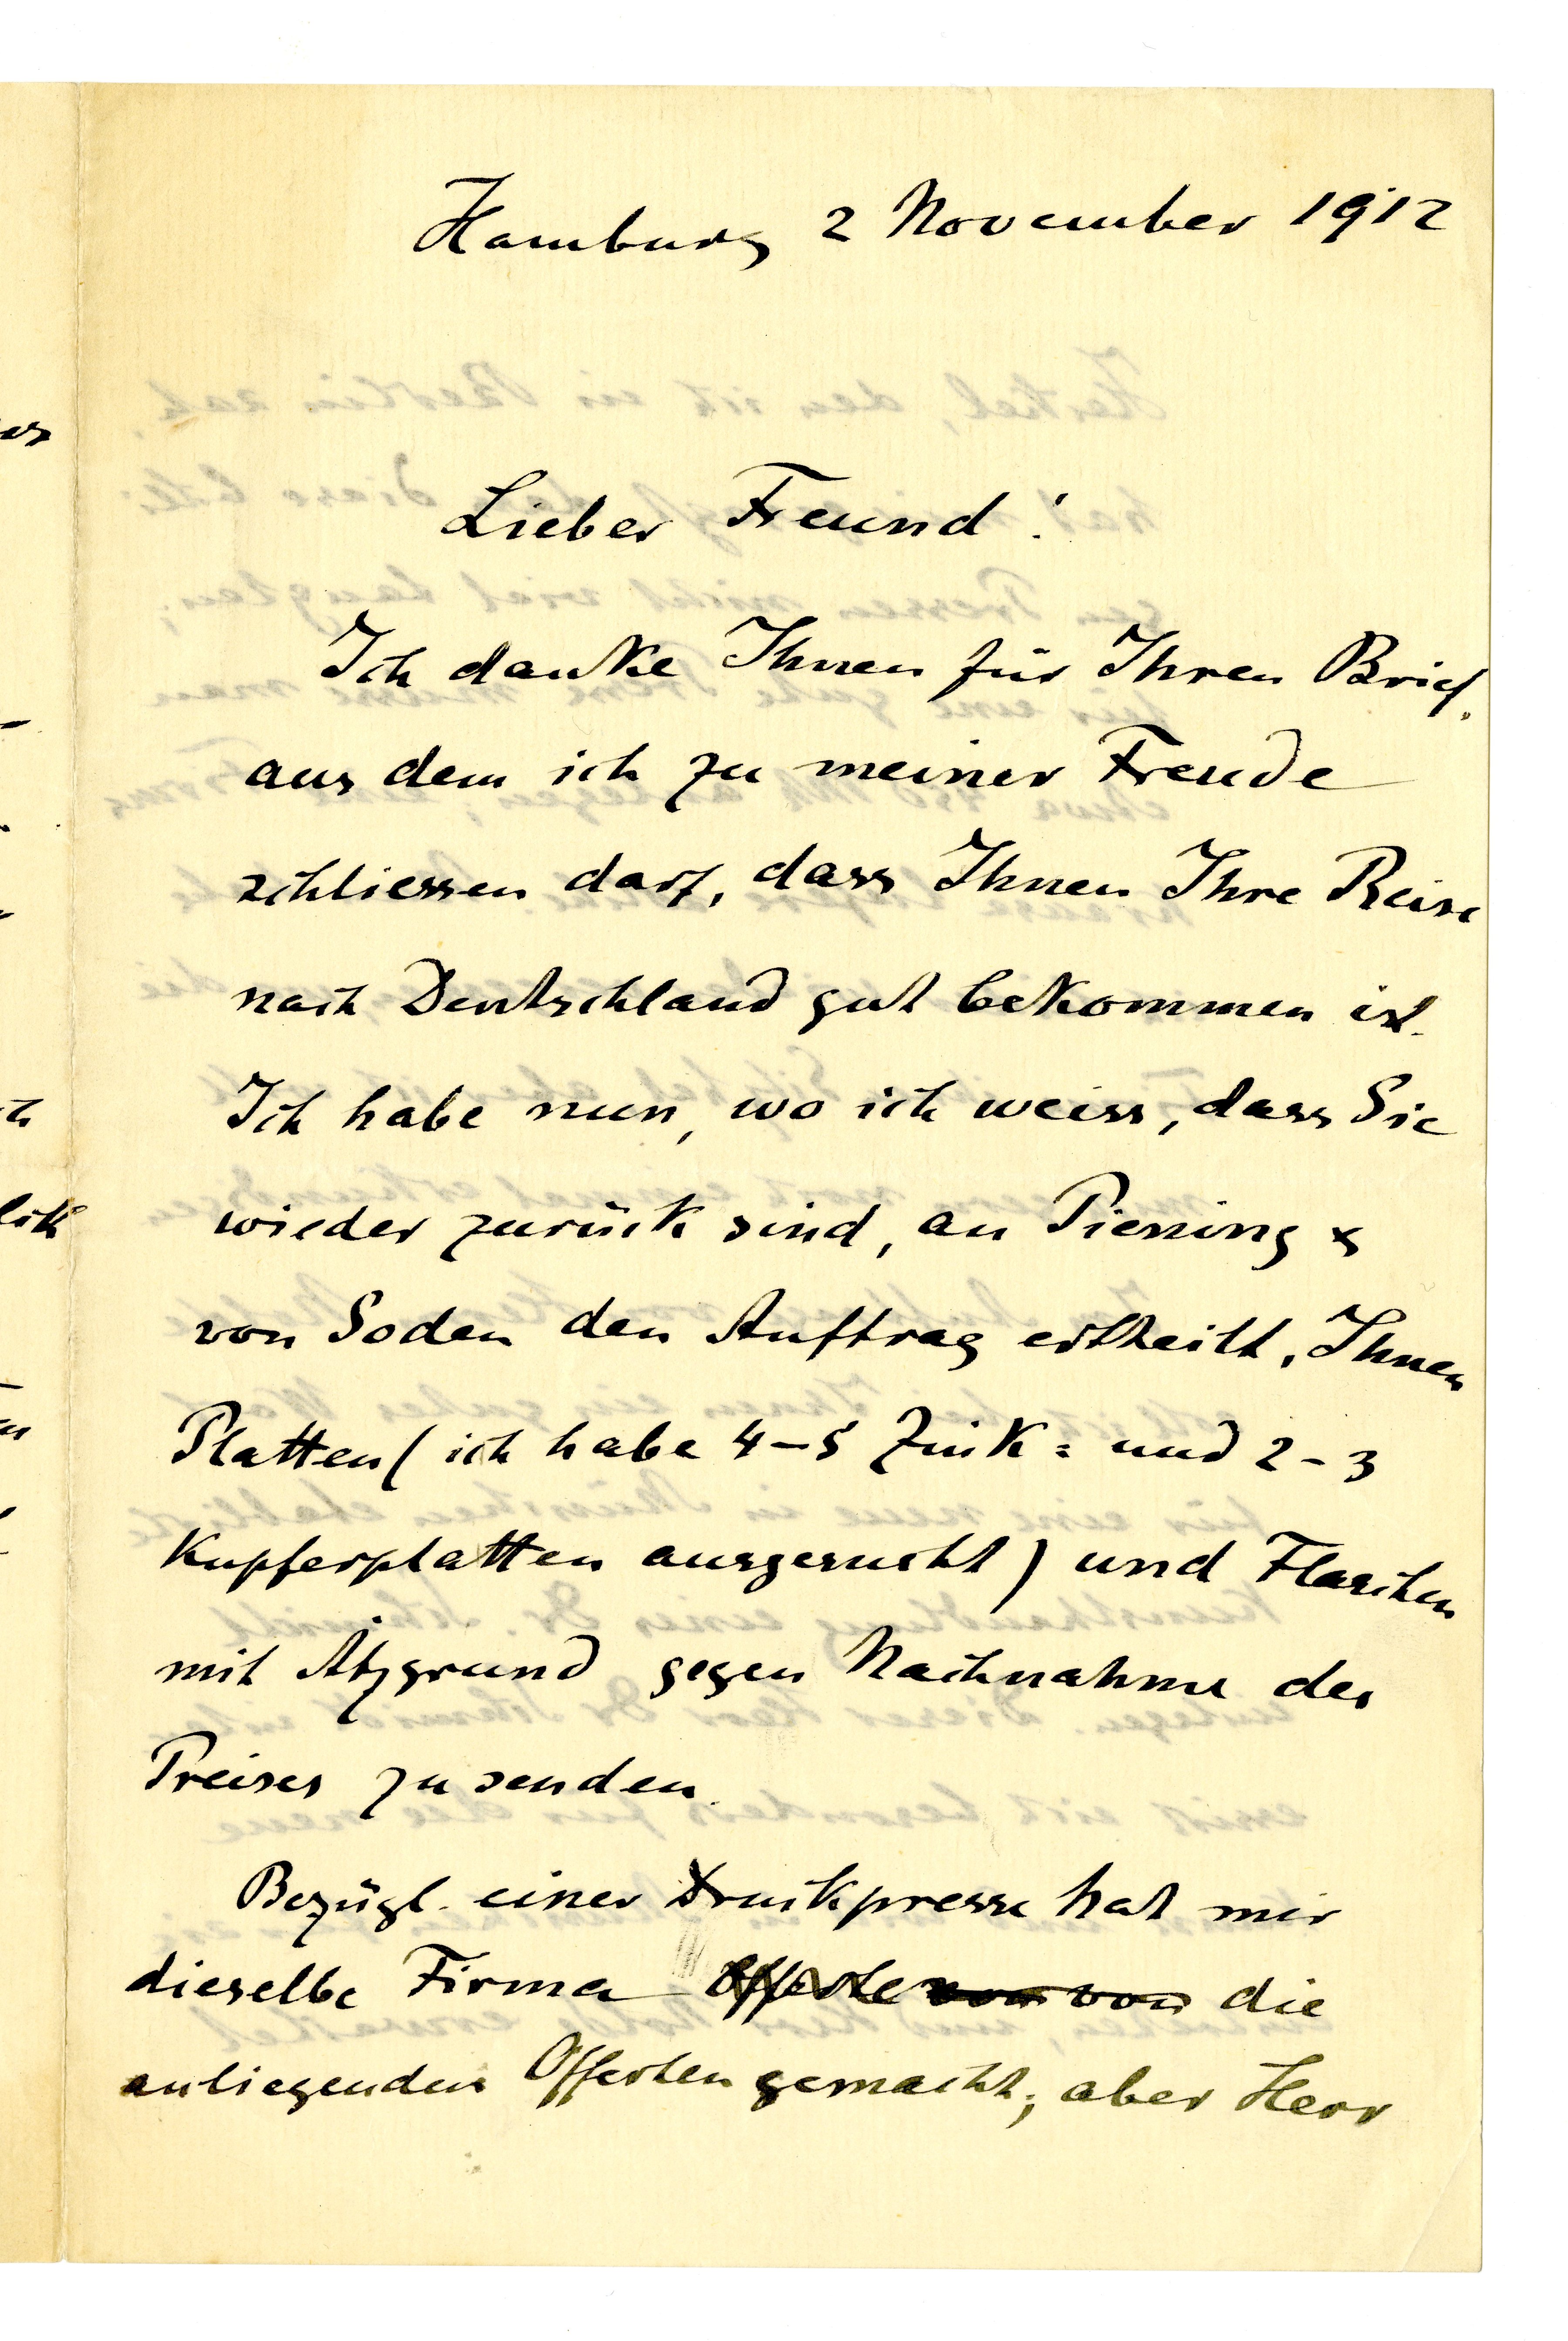 Hamburg 2 November 1912
Lieber Freund!
Ich danke Ihnen für Ihren Brief,
aus dem ich zu meiner Freude
schliessen darf, dass Ihnen Ihre Reise
nach Deutschland gut bekommen ist.
Ich habe nun, wo ich weiss, dass Sie
wieder zurück sind, an Piening &
von Soden den Auftrag ertheilt, Ihnen
Platten (ich habe 4–5 Zink= und 2–3
Kupferplatten ausgesucht) und Flaschen
mit Ätzgrund gegen Nachnahme des
Preises zu senden.
Bezügl. einer Druckpresse hat mir
dieselbe Firma Offerte von von die
anliegenden Offerten gemacht; aber Herr